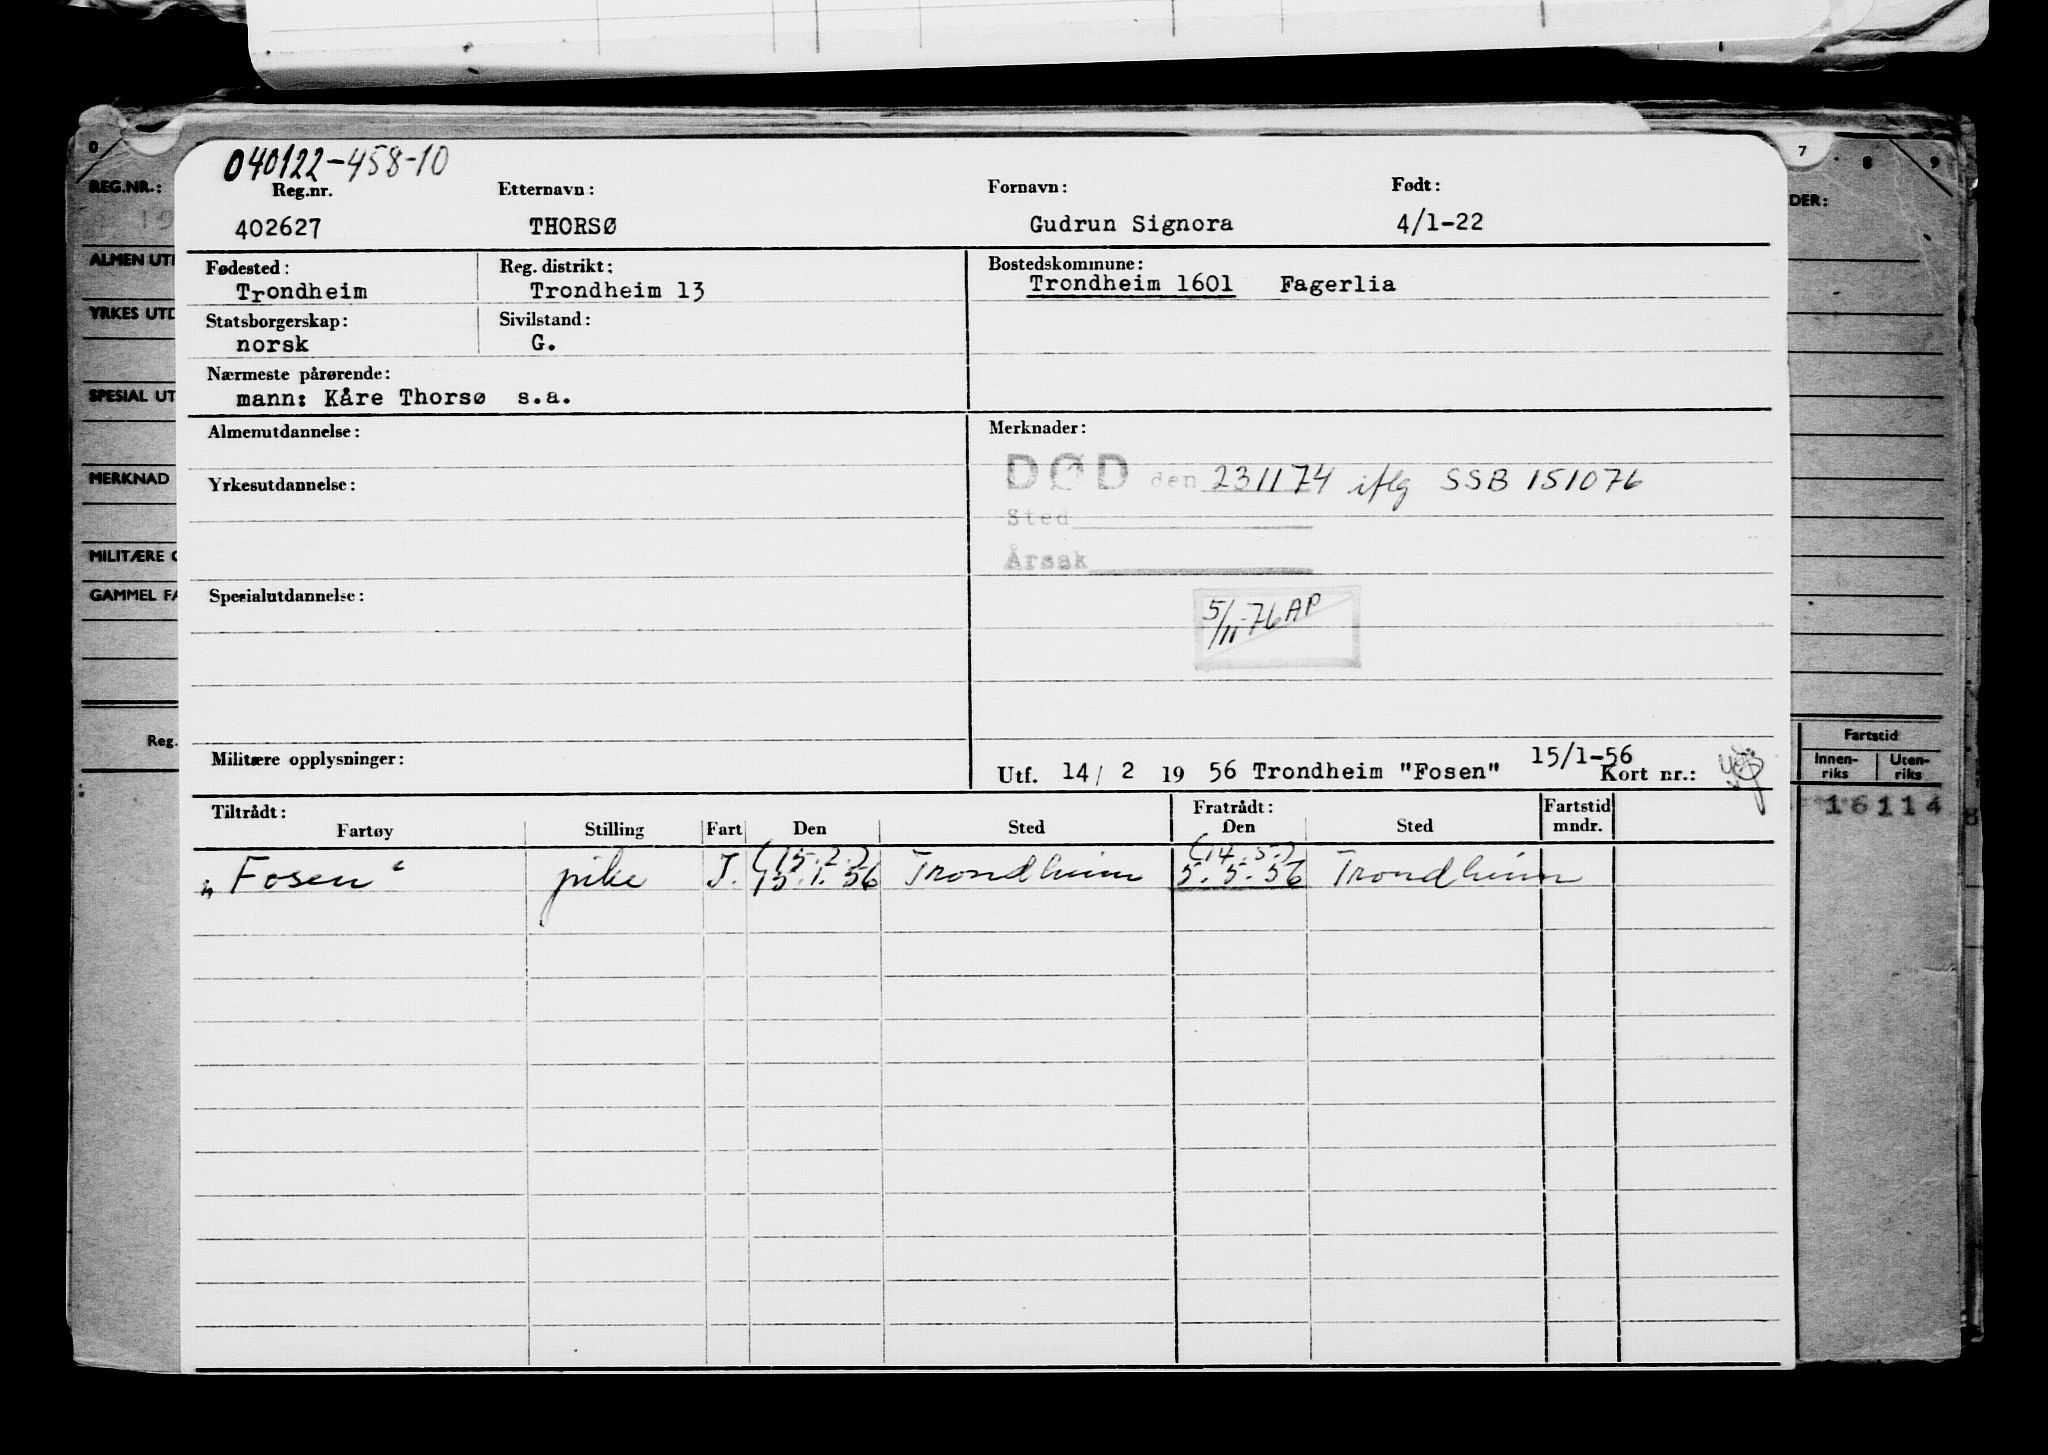 040122-458-10
Reg.nr. Etternavn: Fornavn: Født:
402627 THORSØ Gudrun Signora 4/1-22
Fødested: Reg. distrikt: Bostedskommune:
Trondheim Trondheim 13 Trondheim 1601 Fagerlia
Statsborgerskap: Sivilstand:
norsk G.
Nærmeste pårørende:
mann: Kåre Thorsø s.a.
Almenutdannelse: Merknader:
DØD den 231174 iflg SSB 151076
Yrkesutdannelse:
Sted
Årsak
Spesialutdannelse:
5/11-76 AP
Militære opplysninger:
15/1-56
Utf. 14/ 2 19 56 Trondheim "Fosen" Kort nr.:
Tiltrådt: Fratrådt: Fartstid
Fartøy Stilling Fart Den Sted Den Sted mndr.
(15.2.) (14.5.)
"Fosen" pike J. 15.1.56 Trondheim 5.5.56 Trondheim
0
REG.NR.:
19
ALMEN UT
YRKES UTD
SPESIAL UT
MERKNAD
MILITÆRE O
GAMMEL FA
Reg.
7 8 9
DER:
Fartstid
Innen-riks Uten-riks
16114